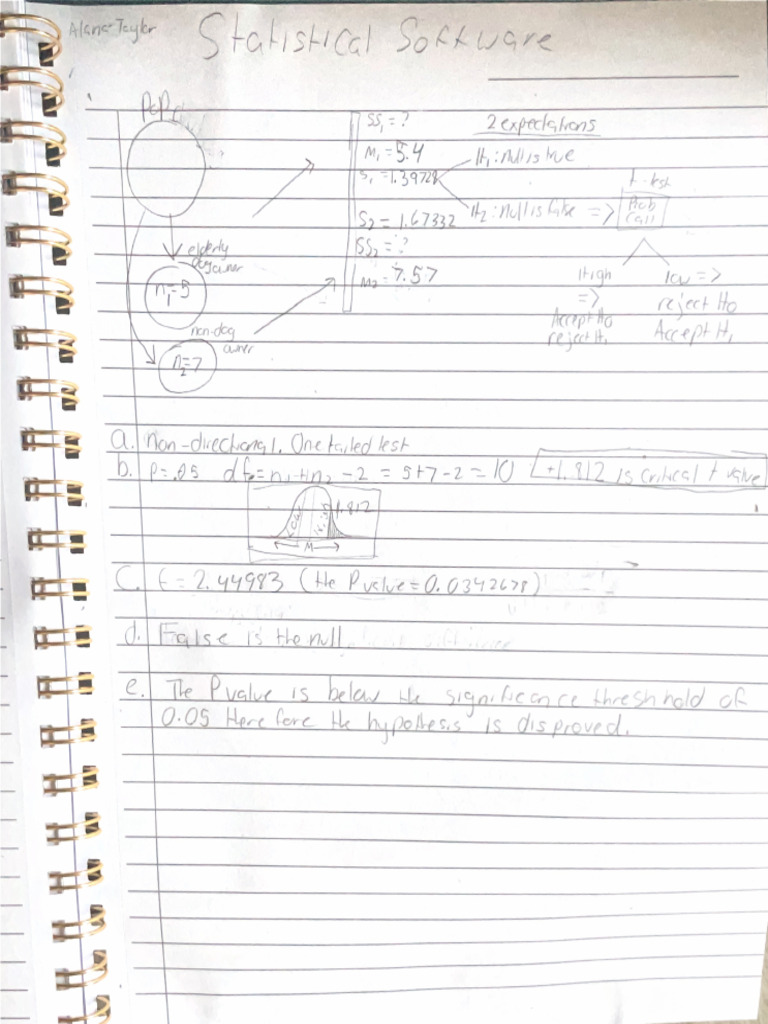 Alana Taylor
Statistical Software
POP
SS₁ = ?
2 expectations
M₁ = 5.4
H₁: Null is true
S₁ = 1.39728
t-test
H₂: Null is false => Prob
Call
S₂ = 1.67332
SS₂ = ?
M₂ = 7.57
elderly
dog owner
n₁=5
High
=>
Accept H₀
reject H₁
low =>
reject H₀
Accept H₁
non-dog
owner
n₂=7
a. Non-directional. One tailed test
b. P=.05 df= n₁+n₂ -2 = 5+7-2 = 10 +1.812 is critical t value
1.812
M
C. t = 2.44983 (the P value = 0.0342678)
d. False is the null.
e. The P value is below the significance threshhold of
0.05 therefore the hypothesis is disproved.